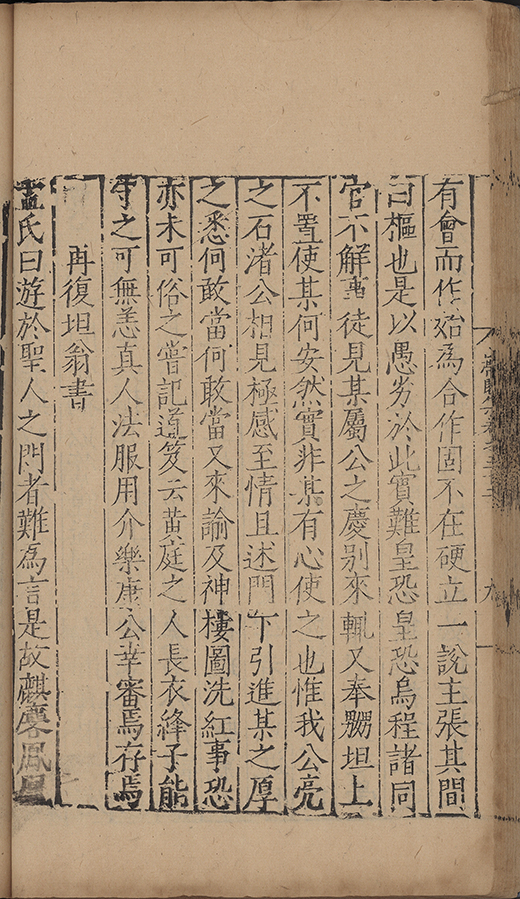 有會而作始為合作固不在硬立一說主張其間
曰樞也是以愚劣於此實難皇恐皇恐烏程諸同
官不解事徒見某屬公之慶別來輒又奉嬲坦上
不置使某何安然實非某有心使之也惟我公亮
之石渚公相見極感至情且述門下引進某之厚
之悉何敢當何敢當又來諭及神樓圖洗紅事恐
亦未可俗之嘗記道笈云黃庭之人長衣絳子能
守之可無恙真人法服用介樂康公幸審焉存焉
再復坦翁書
孟氏曰遊於聖人之門者難為言是故麒麐鳳凰